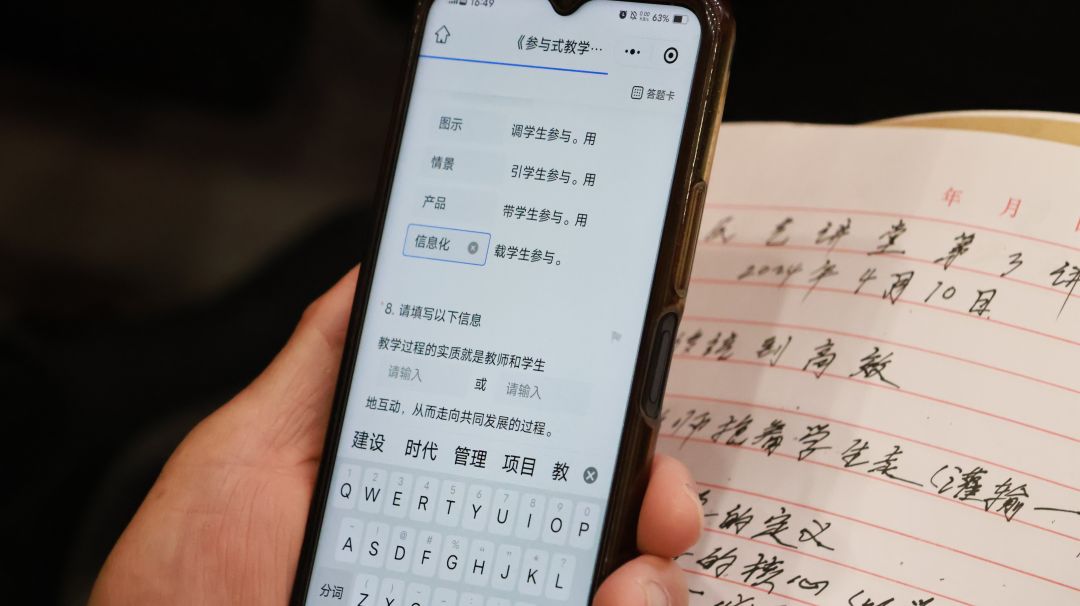 16:49
63%
《参与式教学…
答题卡
图示 调学生参与。用
情景 引学生参与。用
产品 带学生参与。用
信息化 载学生参与。
*8. 请填写以下信息
教学过程的实质就是教师和学生
请输入 或 请输入
地互动，从而走向共同发展的过程。
建设 时代 管理 项目 教
1 2 3 4 5 6 7 8 9 0
Q W E R T Y U I O P
A S D F G H J K L
分词 Z
年 月
讲堂第3讲
2024年4月10日
到高效
师抱着学生走（灌输一
的定义
的核心